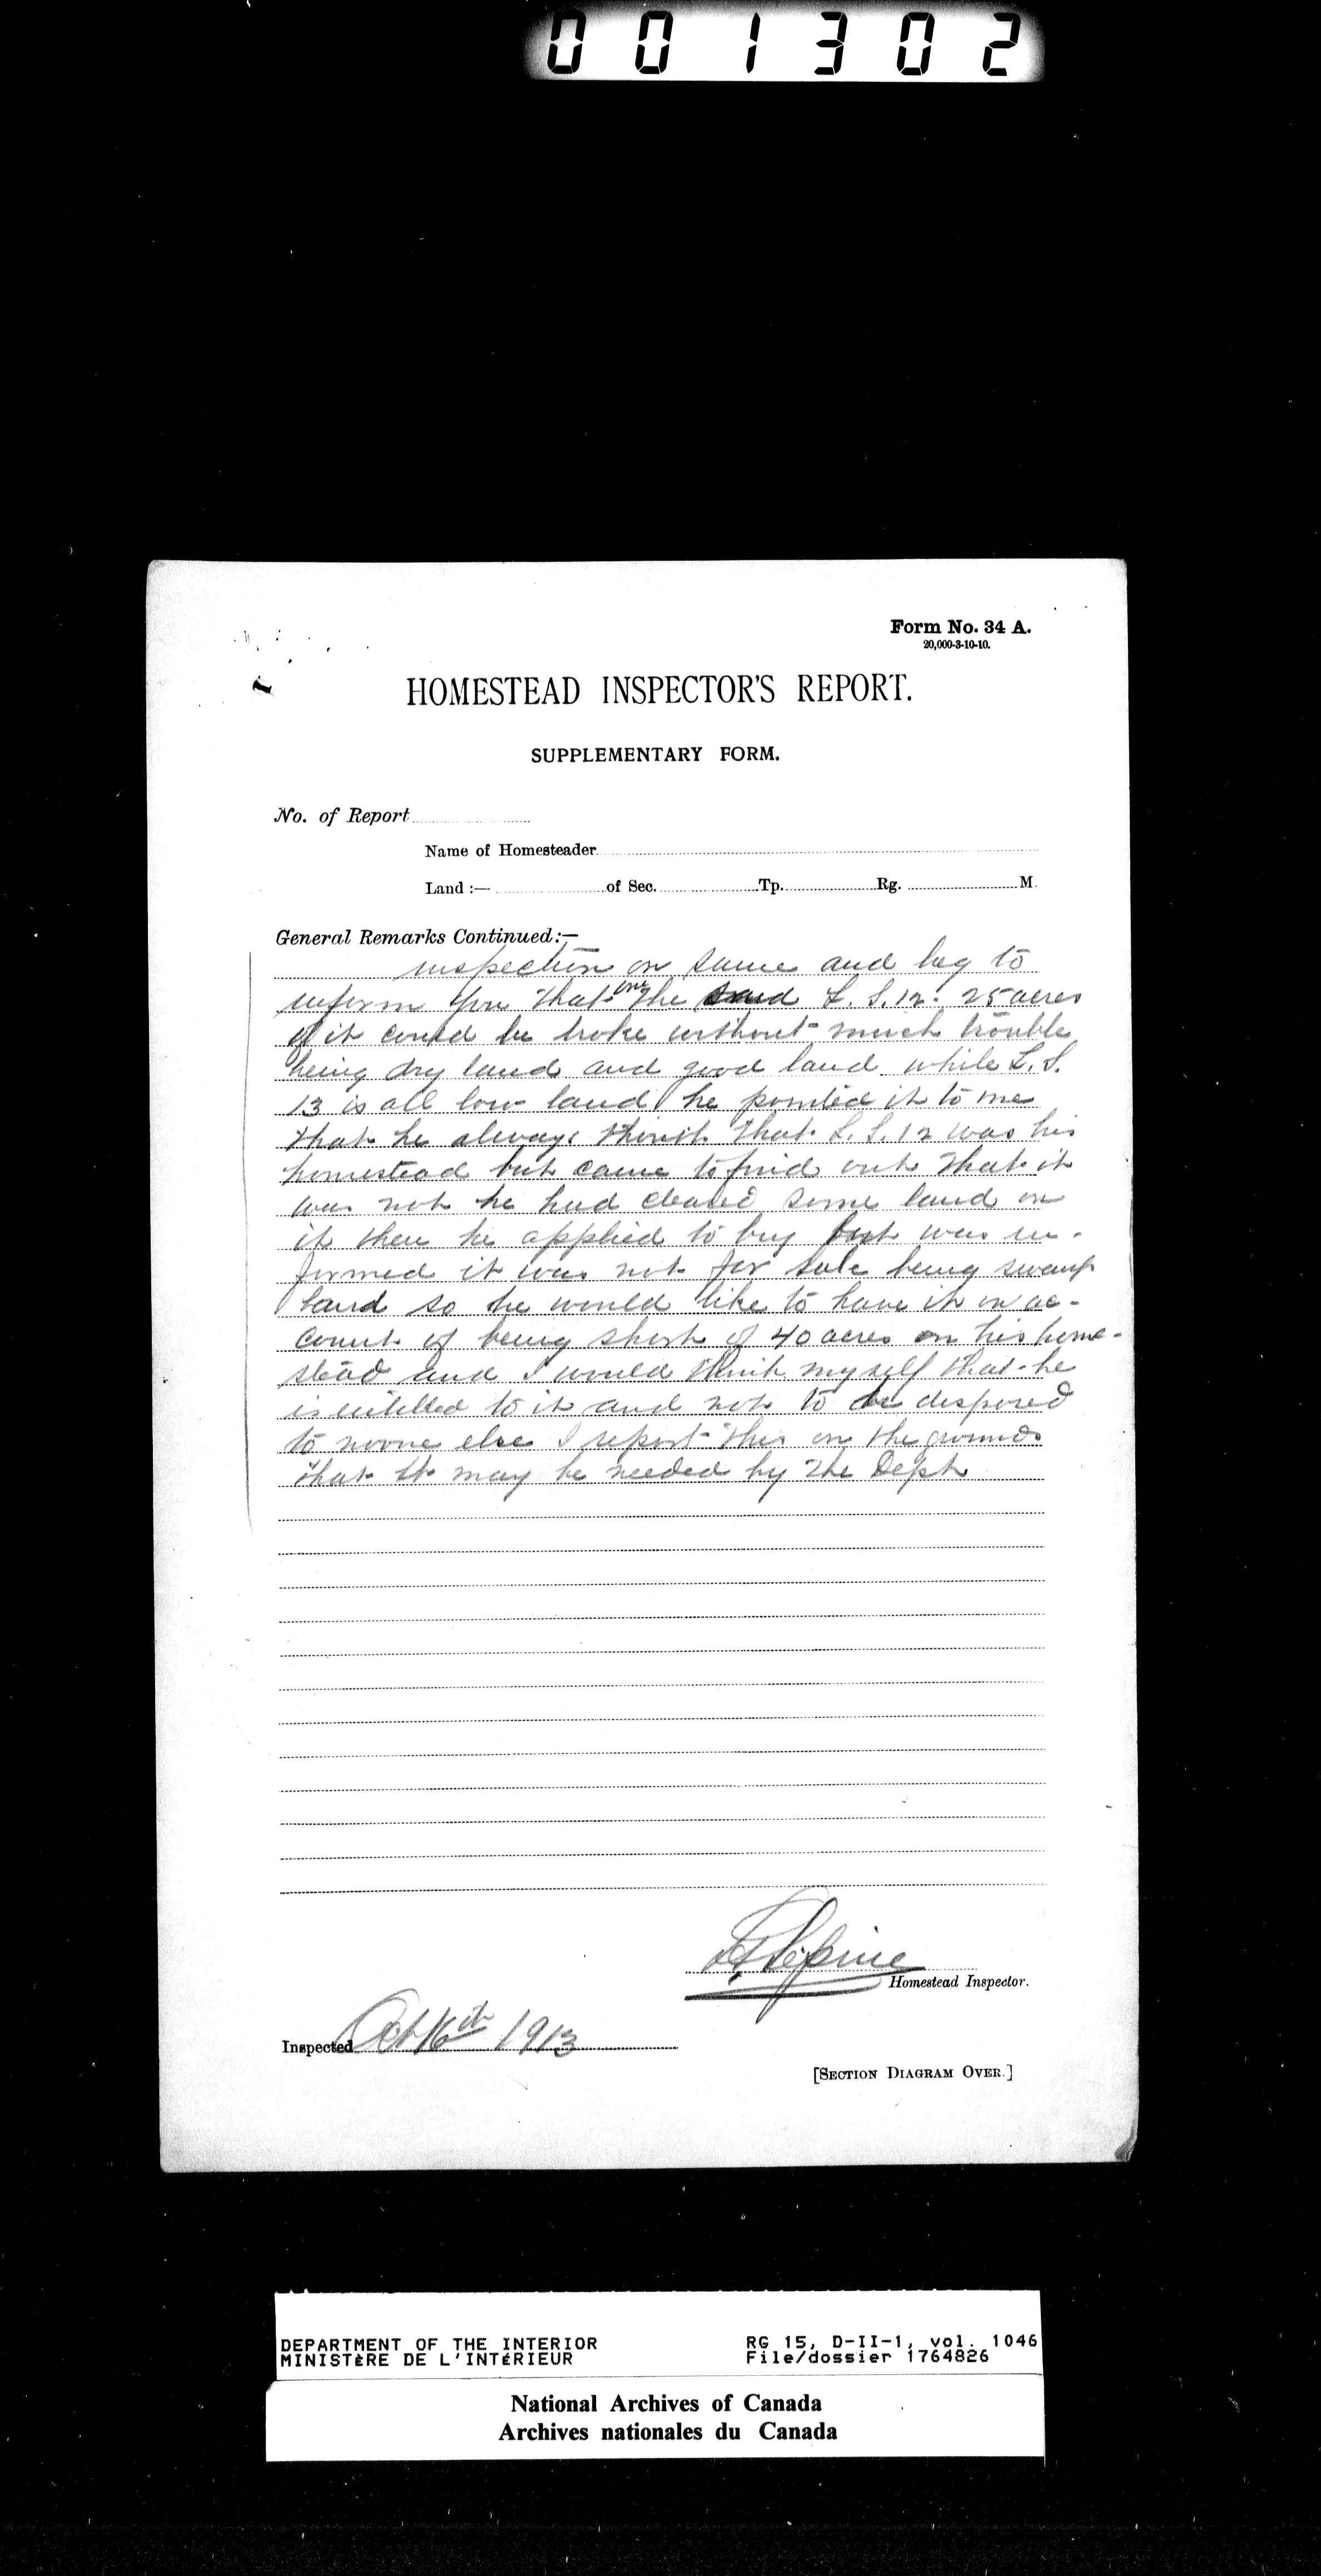 001302
Form No. 34 A.
20,000-3-10-10.
HOMESTEAD INSPECTOR'S REPORT.
SUPPLEMENTARY FORM.
No. of Report
Name of Homesteader
Land :— of Sec. Tp. Rg. M.
General Remarks Continued :—
inspection on same and beg to
inform you that on the said L. S. 12. 25 acres
of it could be broke without much trouble
being dry land and good land while L. S.
13 is all low land he pointed it to me
that he always think that L. S. 12 was his
homestead but came to find out that it
was not he had cleared some land on
it then he applied to buy but was in-
formed it was not for sale being swamp
land so he would like to have it on ac-
count of being short of 40 acres on his home-
stead and I would think myself that he
is intitled to it and not to be disposed
to noone else I report this on the grounds
that it may be needed by the Dept
Lépine
Homestead Inspector.
Inspected Oct 16th 1913
[SECTION DIAGRAM OVER.]
DEPARTMENT OF THE INTERIOR RG 15, D-II-1, vol. 1046
MINISTÈRE DE L'INTÉRIEUR File/dossier 1764826
National Archives of Canada
Archives nationales du Canada